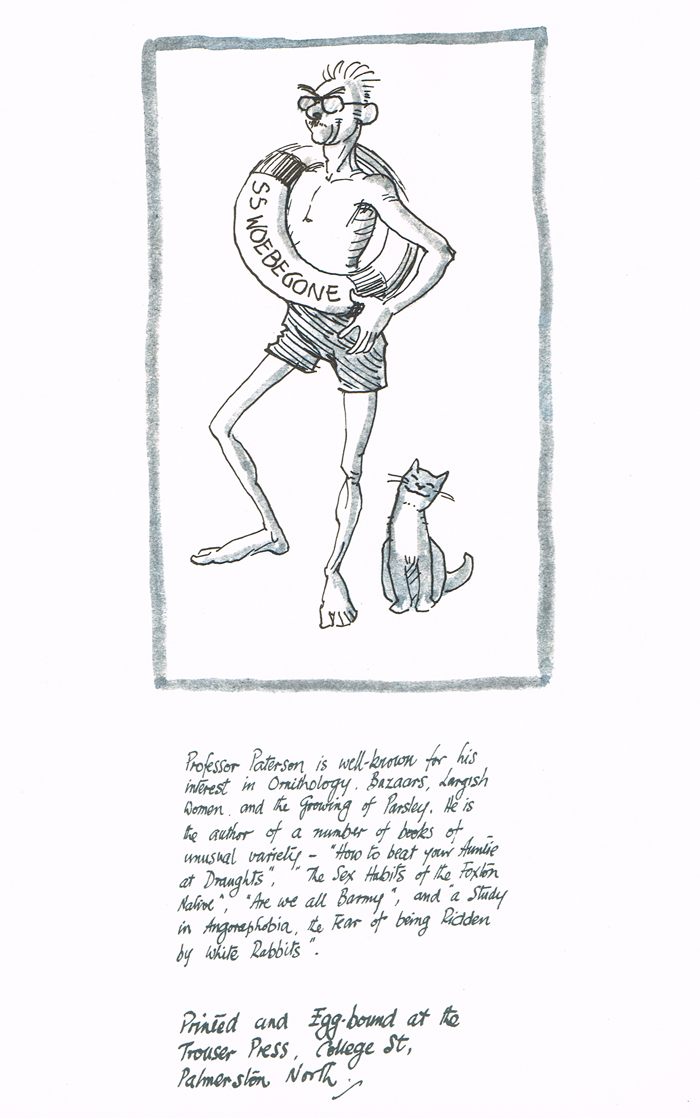 SS WOEBEGONE
Professor Paterson is well-known for his
interest in Ornithology. Bazaars, Largish
Women. and the Growing of Parsley. He is
the author of a number of books of
unusual variety - "How to beat your Auntie
at Draughts", "The Sex Habits of the Foxton
Native", "Are we all Barmy", and "a Study
in Angoraphobia, the Fear of being Ridden
by White Rabbits".
Printed and Egg-bound at the
Trouser Press, College St,
Palmerston North.